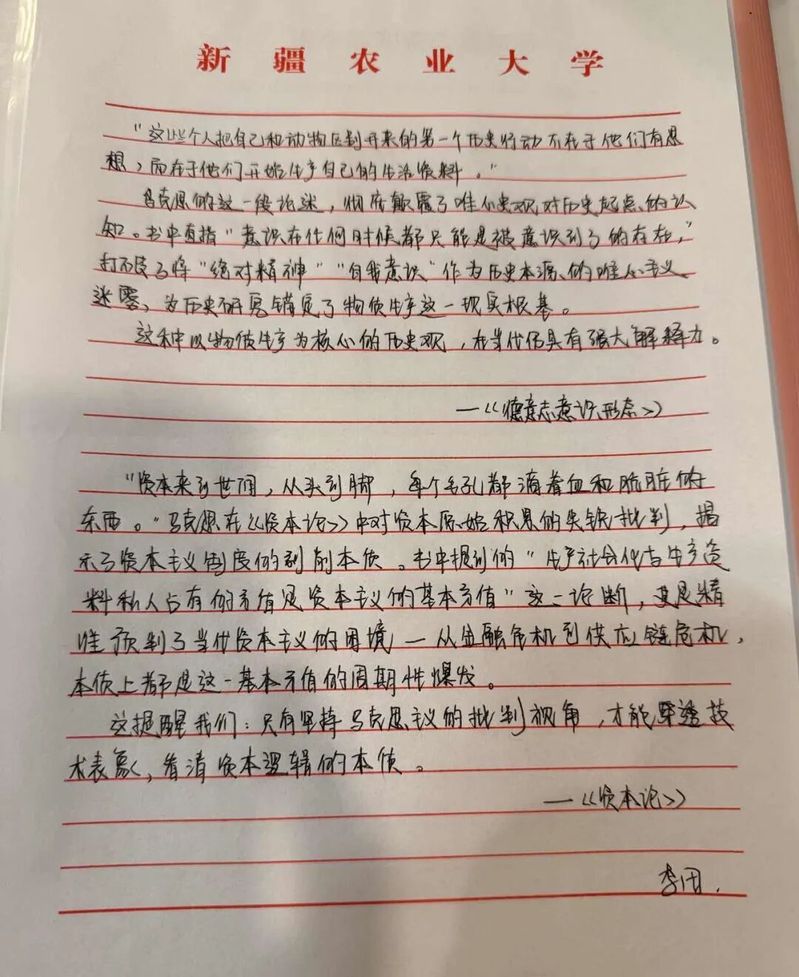 新疆农业大学
"这些个人把自己和动物区别开来的第一个历史行动不在于他们有思
想,而在于他们开始生产自己的生活资料。"
马克思的这一段论述,彻底颠覆了唯心史观对历史起点的认
知。书中直指"意识在任何时候都只能是被意识到了的存在,"
打破了将"绝对精神""自我意识"作为历史本源的唯心主义
迷雾,为历史研究锚定了物质生产这一现实根基。
这种以物质生产为核心的历史观,在当代仍具有强大解释力。
—《德意志意识形态》
"资本来到世间,从头到脚,每个毛孔都滴着血和肮脏的
东西。"马克思在《资本论》中对资本原始积累的尖锐批判,揭
示了资本主义制度的剥削本质。书中提到的"生产社会化与生产资
料私人占有的矛盾是资本主义的基本矛盾"这一论断,更是精
准预判了当代资本主义的困境—从金融危机到供应链危机,
本质上都是这一基本矛盾的周期性爆发。
这提醒我们:只有坚持马克思主义的批判视角,才能穿透技
术表象,看清资本逻辑的本质。
—《资本论》